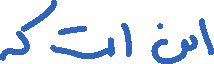 این است که